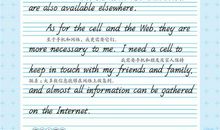 are also available elsewhere.
As for the cell and the Web, they are
至于手机和网络，我更需要它们。
more necessary to me. I need a cell to
我需要手机和朋友及家人保持
keep in touch with my friends and family,
联系；大多数信息能够在网络上收集到。
and almost all information can be gathered
on the Internet.